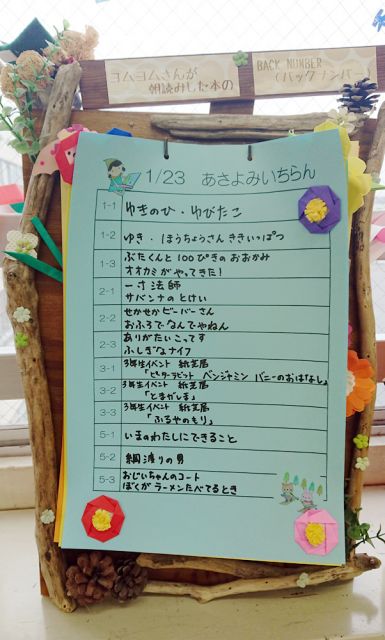 ヨムヨムさんが
朝読みした本の
BACK NUMBER
(バックナンバー)
1/23 あさよみいちらん
1-1 ゆきのひ・ゆびたこ
1-2 ゆき・ほうちょうさんききいっぱつ
1-3 ぶたくんと100ぴきのおおかみ
オオカミがやってきた!
2-1 一寸法師
サバンナのとけい
2-2 せかせかビーバーさん
おふろでなんでやねん
2-3 ありがたいこってす
ふしぎなナイフ
3-1 3年生イベント 紙芝居
「ピーターラビット ベンジャミン バニーのおはなし」
3-2 3年生イベント 紙芝居
3-3 3年生イベント 紙芝居
「ふるやのもり」
5-1 いまのわたしにできること
5-2 綱渡りの男
5-3 おじいちゃんのコート
ぼくがラーメンたべてるとき